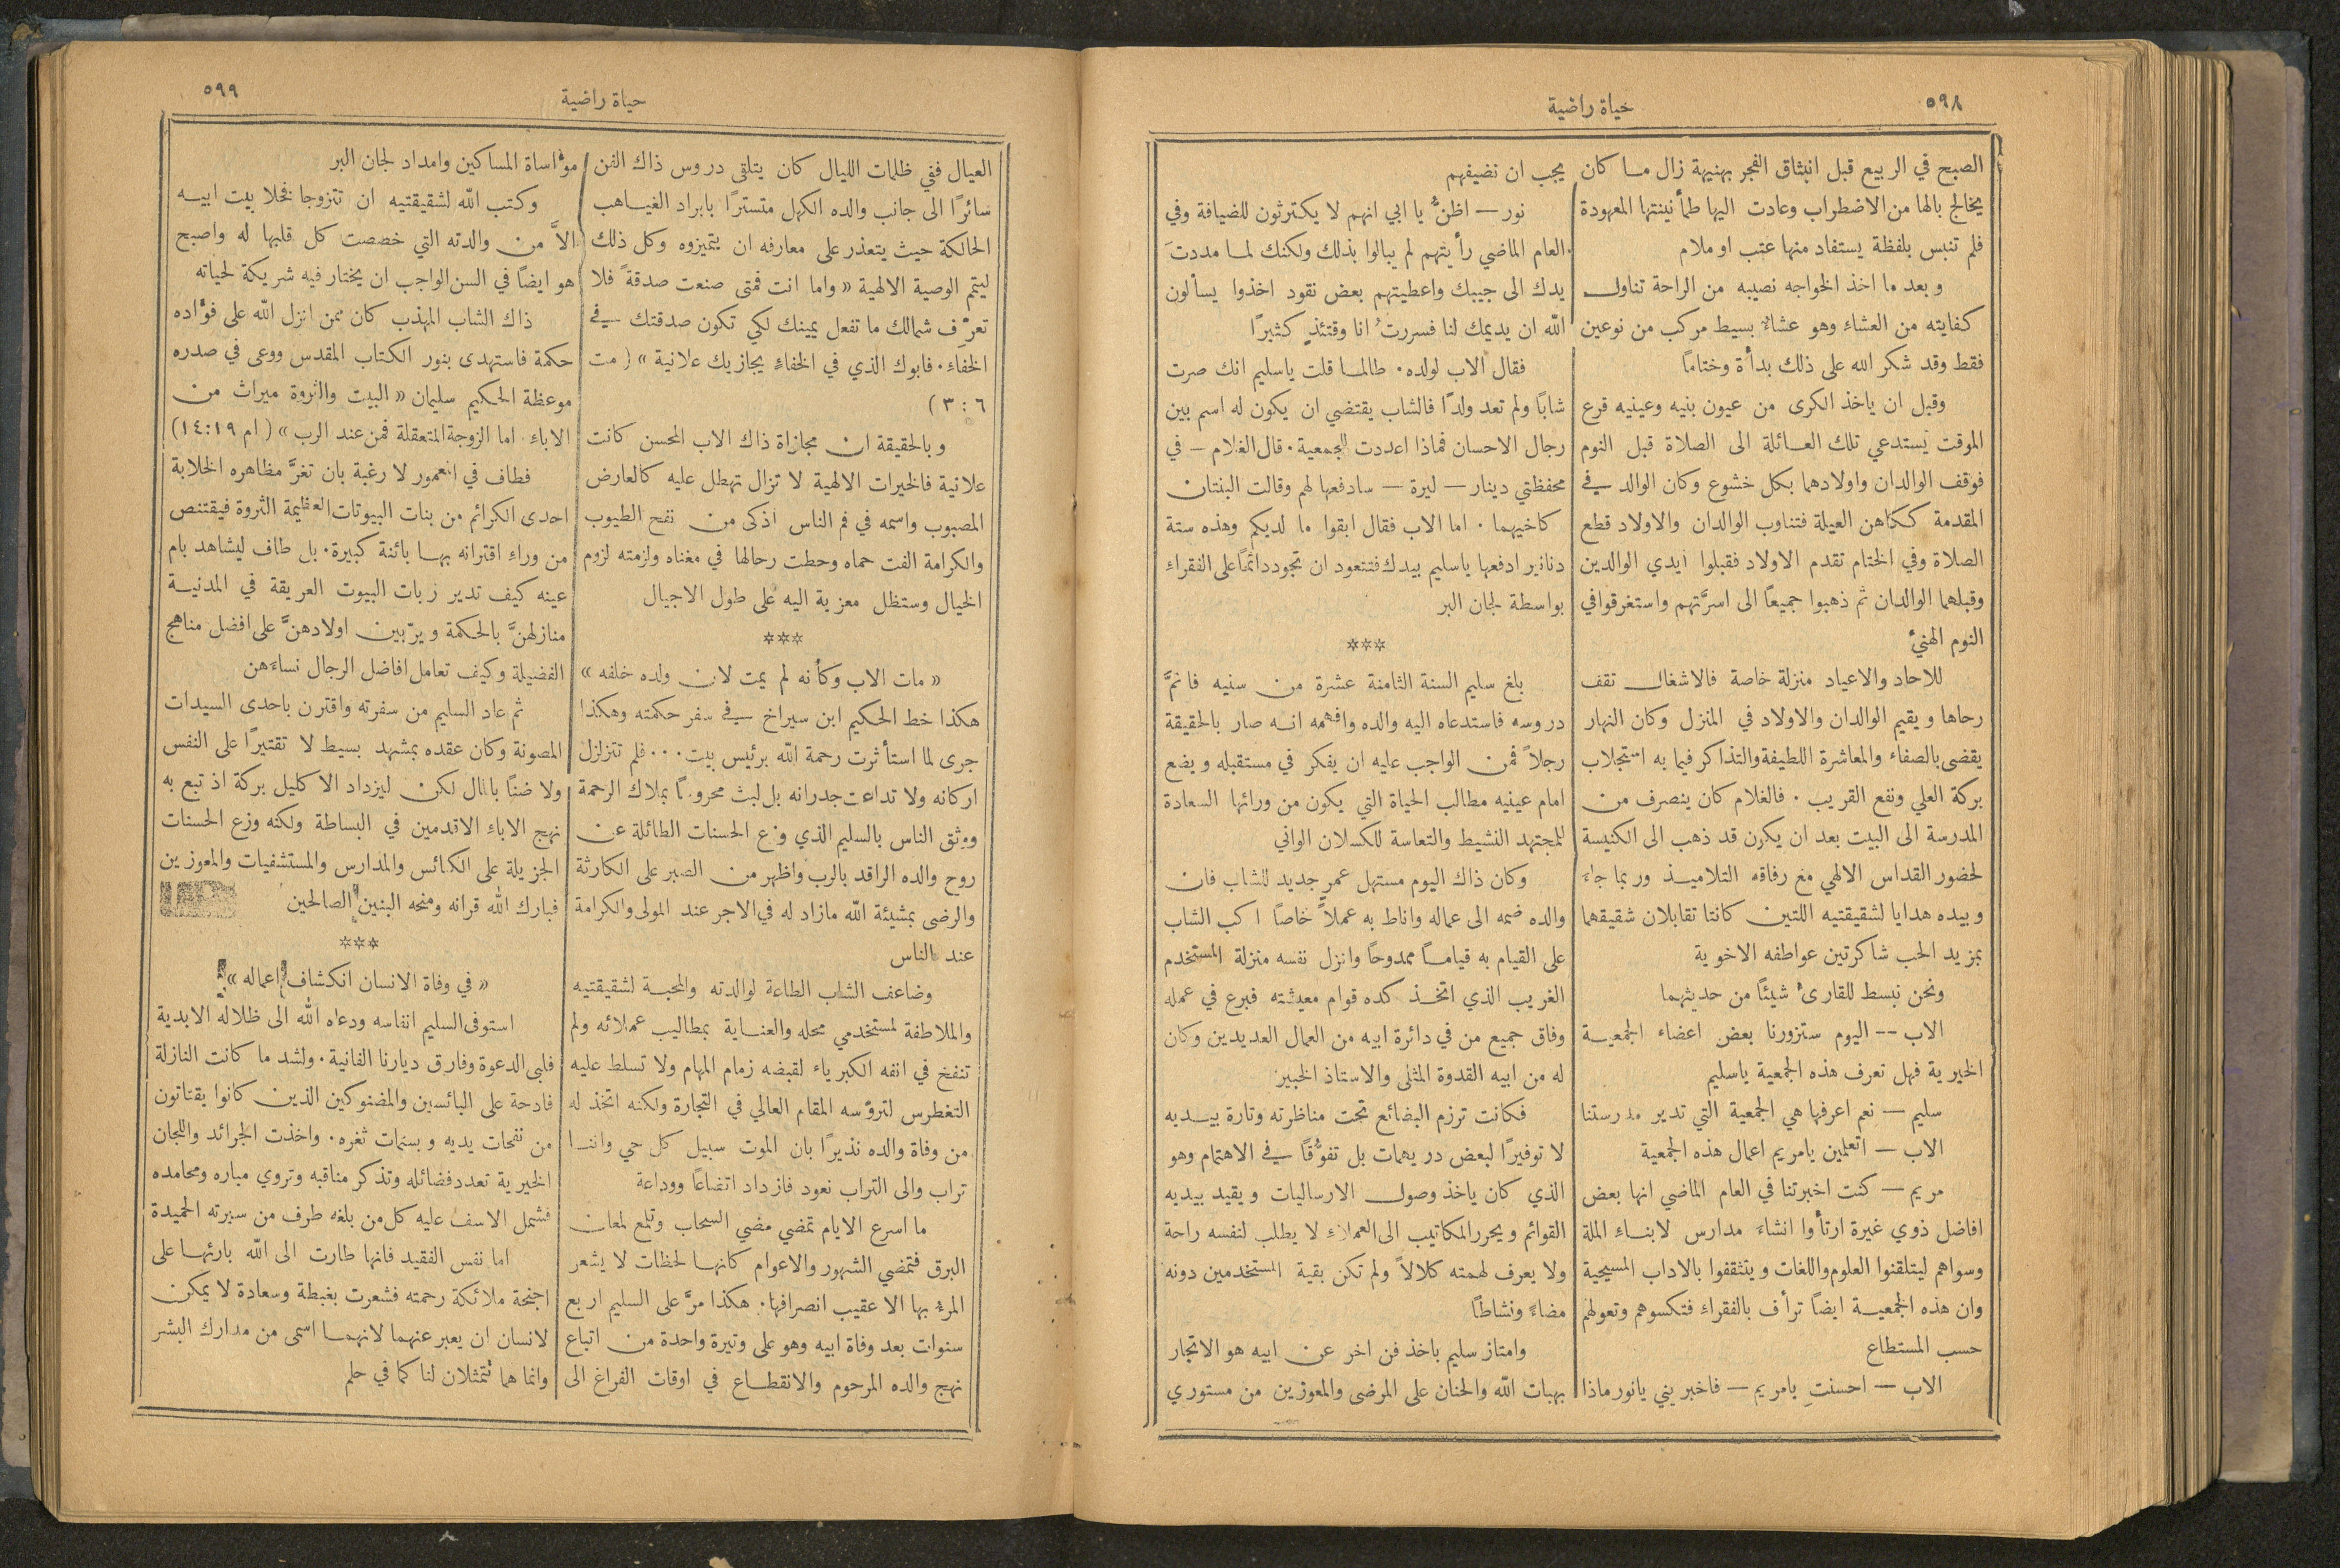 ٥٩٨
حياة راضية
الصبح في الربيع قبل انبثاق الفجر بهنيهة زال مـا كان
يخالج بالها من الاضطراب وعادت اليها طمأنينتها المعهودة
فلم تنبس بلفظة يستفاد منها عتب او ملام
وبعد ما اخذ الخواجه نصيبه من الراحة تناول
كفايته من العشاء وهو عشاءٌ بسيط مركب من نوعين
فقط وقد شكر الله على ذلك بدأة وختامًا
وقبل ان ياخذ الكرى من عيون بنيه وعينيه قرع
الموقت يستدعي تلك العـائلة الى الصلاة قبل النوم
فوقف الوالدان واولادهما بكل خشوع وكان الوالد في
المقدمة ككاهن العيلة فتناوب الوالدان والاولاد قطع
الصلاة وفي الختام تقدم الاولاد فقبلوا ايدي الوالدين
وقبلهما الوالدان ثم ذهبوا جميعًا الى اسرَّتهم واستغرقوا في
النوم الهنيء
للاحاد والاعياد منزلة خاصة فالاشغال تقف
رحاها ويقيم الوالدان والاولاد في المنزل وكان النهار
يقضى بالصفاء والمعاشرة اللطيفة والتذاكر فيما به استجلاب
بركة العلي ونفع القريب . فالغلام كان ينصرف من
المدرسة الى البيت بعد ان يكون قد ذهب الى الكنيسة
لحضور القداس الالهي مع رفاقه التلاميـذ وربما جاءَ
وبيده هدايا لشقيقتيه اللتين كانتا تقابلان شقيقهما
بمزيد الحب شاكرتين عواطفه الاخوية
ونحن نبسط للقارىء شيئًا من حديثهما
الاب -- اليوم ستزورنا بعض اعضاء الجمعيـة
الخيرية فهل تعرف هذه الجمعية ياسليم
سليم — نعم اعرفها هي الجمعية التي تدير مدرستنا
الاب — اتعلمين يامريم اعمال هذه الجمعية
مريم — كنت اخبرتنا في العام الماضي انها بعض
افاضل ذوي غيرة ارتأوا انشاء مدارس لابنـاء الملة
وسواهم ليتلقنوا العلوم واللغات ويتثقفوا بالاداب المسيحية
وان هذه الجمعيـة ايضًا ترأف بالفقراء فتكسوهم وتعولهم
حسب المستطاع
الاب — احسنتِ يامريم — فاخبريني يانور ماذا
يجب ان نضيفهم
نور — اظنُّ يا ابي انهم لا يكترثون للضيافة وفي
العام الماضي رأيتهم لم يبالوا بذلك ولكنك لمـا مددتَ
يدك الى جيبك واعطيتهم بعض نقود اخذوا يسألون
الله ان يديمك لنا فسررتُ انا وقتئذٍ كثيرًا
فقال الاب لولده . طالمـا قلت ياسليم انك صرت
شابًا ولم تعد ولدًا فالشاب يقتضي ان يكون له اسم بين
رجال الاحسان فماذا اعددت للجمعية . قال الغلام — في
محفظتي دينار — ليرة — سادفعها لهم وقالت البنتان
كاخيهما . اما الاب فقال ابقوا ما لديكم وهذه ستة
دنانير ادفعها ياسليم بيدك فتتعود ان تجود دائمًا على الفقراء
بواسطة لجان البر
***
بلغ سليم السنة الثامنة عشرة من سنيه فاتمَّ
دروسه فاستدعاه اليه والده وافهمه انـه صار بالحقيقة
رجلاً فمن الواجب عليه ان يفكر في مستقبله ويضع
امام عينيه مطالب الحياة التي يكون من ورائها السعادة
للمجتهد النشيط والتعاسة للكسلان الواني
وكان ذاك اليوم مستهل عمرٍ جديد للشاب فان
والده ضمه الى عماله واناط به عملاً خاصًا اكب الشاب
على القيام به قيامـًا ممدوحًا وانزل نفسه منزلة المستخدم
الغريب الذي اتخـذ كده قوام معيشته فبرع في عمله
وفاق جميع من في دائرة ابيه من العمال العديدين وكان
له من ابيه القدوة المثلى والاستاذ الخبير
فكانت ترزم البضائع تحت مناظرته وتارة بيـديه
لا توفيرًا لبعض دريهمات بل تفوُّقًا في الاهتمام وهو
الذي كان ياخذ وصول الارساليات ويقيد بيديه
القوائم ويحرر المكاتيب الى العملاء لا يطلب لنفسه راحة
ولا يعرف لهمته كلالاً ولم تكن بقية المستخدمين دونه
مضاءً ونشاطًا
وامتاز سليم باخذ فن اخر عن ابيه هو الاتجار
بهبات الله والحنان على المرضى والمعوزين من مستوري
٥٩٩
حياة راضية
العيال ففي ظلمات الليال كان يتلقى دروس ذاك الفن
سائرًا الى جانب والده الكهل متسترًا بابراد الغيـاهب
الحالكة حيث يتعذر على معارفه ان يتميزوه وكل ذلك
ليتمم الوصية الالهية « واما انت فمتى صنعت صدقةً فلا
تعرّف شمالك ما تفعل يمينك لكي تكون صدقتك في
الخفاء . فابوك الذي في الخفاءِ يجازيك علانية » ( مت
٦ : ٣ )
وبالحقيقة ان مجازاة ذاك الاب المحسن كانت
علانية فالخيرات الالهية لا تزال تهطل عليه كالعارض
المصبوب واسمه في فم الناس اذكى من نفح الطيوب
والكرامة الفت حماه وحطت رحالها في مغناه ولزمته لزوم
الخيال وستظل معزية اليه على طول الاجيال
***
« مات الاب وكأنه لم يمت لان ولده خلفه »
هكذا خط الحكيم ابن سيراخ في سفر حكمته وهكذا
جرى لما استأثرت رحمة الله برئيس بيت ... فلم تتزلزل
اركانه ولا تداعت جدرانه بل لبث محروسًا بملاك الرحمة
ووثق الناس بالسليم الذي وزع الحسنات الطائلة عن
روح والده الراقد بالرب واظهر من الصبر على الكارثة
والرضى بمشيئة الله مازاد له في الاجر عند المولى والكرامة
عند الناس
وضاعف الشاب الطاعة لوالدته والمحبـة لشقيقتيه
والملاطفة لمستخدمي محله والعنـاية بمطاليب عملائه ولم
تنفخ في انفه الكبرياء لقبضه زمام المهام ولا تسلط عليه
التغطرس لترؤسه المقام العالي في التجارة ولكنه اتخذ له
من وفاة والده نذيرًا بان الموت سبيل كل حي واننـا
تراب والى التراب نعود فازداد اتضاعًا ووداعة
ما اسرع الايام تمضي مضي السحاب وتلمع لمعان
البرق فتمضي الشهور والاعوام كانهـا لحظات لا يشعر
المرءُ بها الا عقيب انصرافها . هكذا مرَّ على السليم اربع
سنوات بعد وفاة ابيه وهو على وتيرة واحدة من اتباع
نهج والده المرحوم والانقطـاع في اوقات الفراغ الى
مؤاساة المساكين وامداد لجان البر
وكتب الله لشقيقتيه ان تتزوجا فخلا بيت ابيـه
الاَّ من والدته التي خصصت كل قلبها له واصبح
هو ايضًا في السن الواجب ان يختار فيه شريكة لحياته
ذاك الشاب المهذب كان ممن انزل الله على فؤاده
حكمة فاستهدى بنور الكتاب المقدس ووعى في صدره
موعظة الحكيم سليمان « البيت والثروة ميراث من
الاباء . اما الزوجة المتعقلة فمن عند الرب » ( ام ١٤:١٩ )
فطاف في المعمور لا رغبة بان تغرَّ مظاهره الخلابة
احدى الكرائم من بنات البيوتات العظيمة الثروة فيقتنص
من وراء اقترانه بهـا بائنة كبيرة . بل طاف ليشاهد بام
عينه كيف تدير ربات البيوت العريقة في المدنيـة
منازلهنَّ بالحكمة ويربّين اولادهنَّ على افضل مناهج
الفضيلة وكيف تعامل افاضل الرجال نساءهن
ثم عاد السليم من سفرته واقترن باحدى السيدات
المصونة وكان عقده بمشهد بسيط لا تقتيرًا على النفس
ولا ضنًا بالمال لكن ليزداد الاكليل بركة اذ تبع به
نهج الاباء الاقدمين في البساطة ولكنه وزع الحسنات
الجزيلة على الكنائس والمدارس والمستشفيات والمعوزين
فبارك الله قرانه ومنحه البنين الصالحين
***
« في وفاة الانسان انكشاف اعماله »
استوفى السليم انفاسه ودعاه الله الى ظلاله الابدية
فلبى الدعوة وفارق ديارنا الفانية . ولشد ما كانت النازلة
فادحة على البائسين والمضنوكين الذين كانوا يقتاتون
من نفحات يديه وبسمات ثغره . واخذت الجرائد واللجان
الخيرية تعدد فضائله وتذكر مناقبه وتروي مباره ومحامده
فشمل الاسف عليه كل من بلغه طرف من سيرته الحميدة
اما نفس الفقيد فانها طارت الى الله بارئهـا على
اجنحة ملائكة رحمته فشعرت بغبطة وسعادة لا يمكن
لانسان ان يعبر عنهما لانهمـا اسمى من مدارك البشر
وانما هما تتمثلان لنا كما في حلم